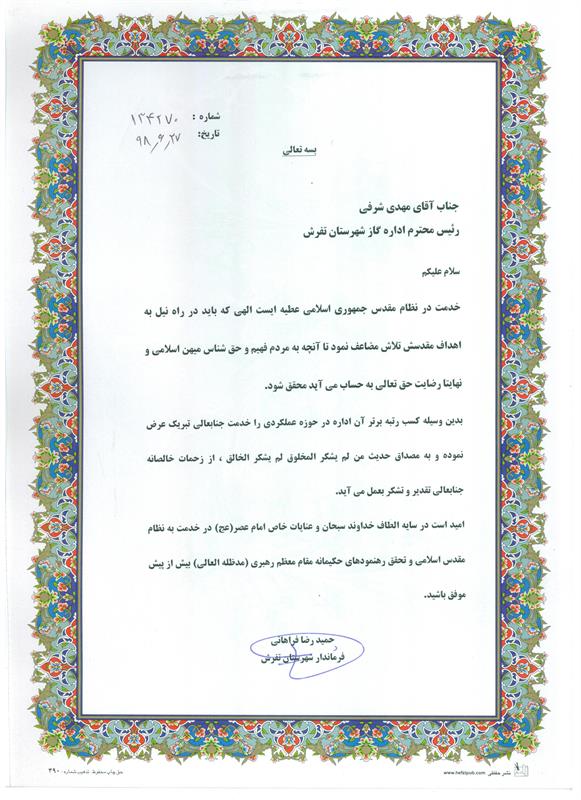 شماره : ۱۳۴۲۷۰
تاریخ: ۹۸٫۶٫۲۷
بسه تعالی
جناب آقای مهدی شرفی
رئیس محترم اداره گاز شهرستان تفرش
سلام علیکم
خدمت در نظام مقدس جمهوری اسلامی عطیه ایست الهی که باید در راه نیل به
اهداف مقدسش تلاش مضاعف نمود تا آنچه به مردم فهیم و حق شناس میهن اسلامی و
نهایتا رضایت حق تعالی به حساب می آید محقق شود.
بدین وسیله کسب رتبه برتر آن اداره در حوزه عملکردی را خدمت جنابعالی تبریک عرض
نموده و به مصداق حدیث من لم یشکر المخلوق لم یشکر الخالق ، از زحمات خالصانه
جنابعالی تقدیر و تشکر بعمل می آید.
امید است در سایه الطاف خداوند سبحان و عنایات خاص امام عصر(عج) در خدمت به نظام
مقدس اسلامی و تحقق رهنمودهای حکیمانه مقام معظم رهبری (مدظله العالی) بیش از پیش
موفق باشید.
حمید رضا فراهانی
فرماندار شهرستان تفرش
حق چاپ محفوظ تذهیب شماره: ۳۹۰
www.hefzipub.com نشر حفظی